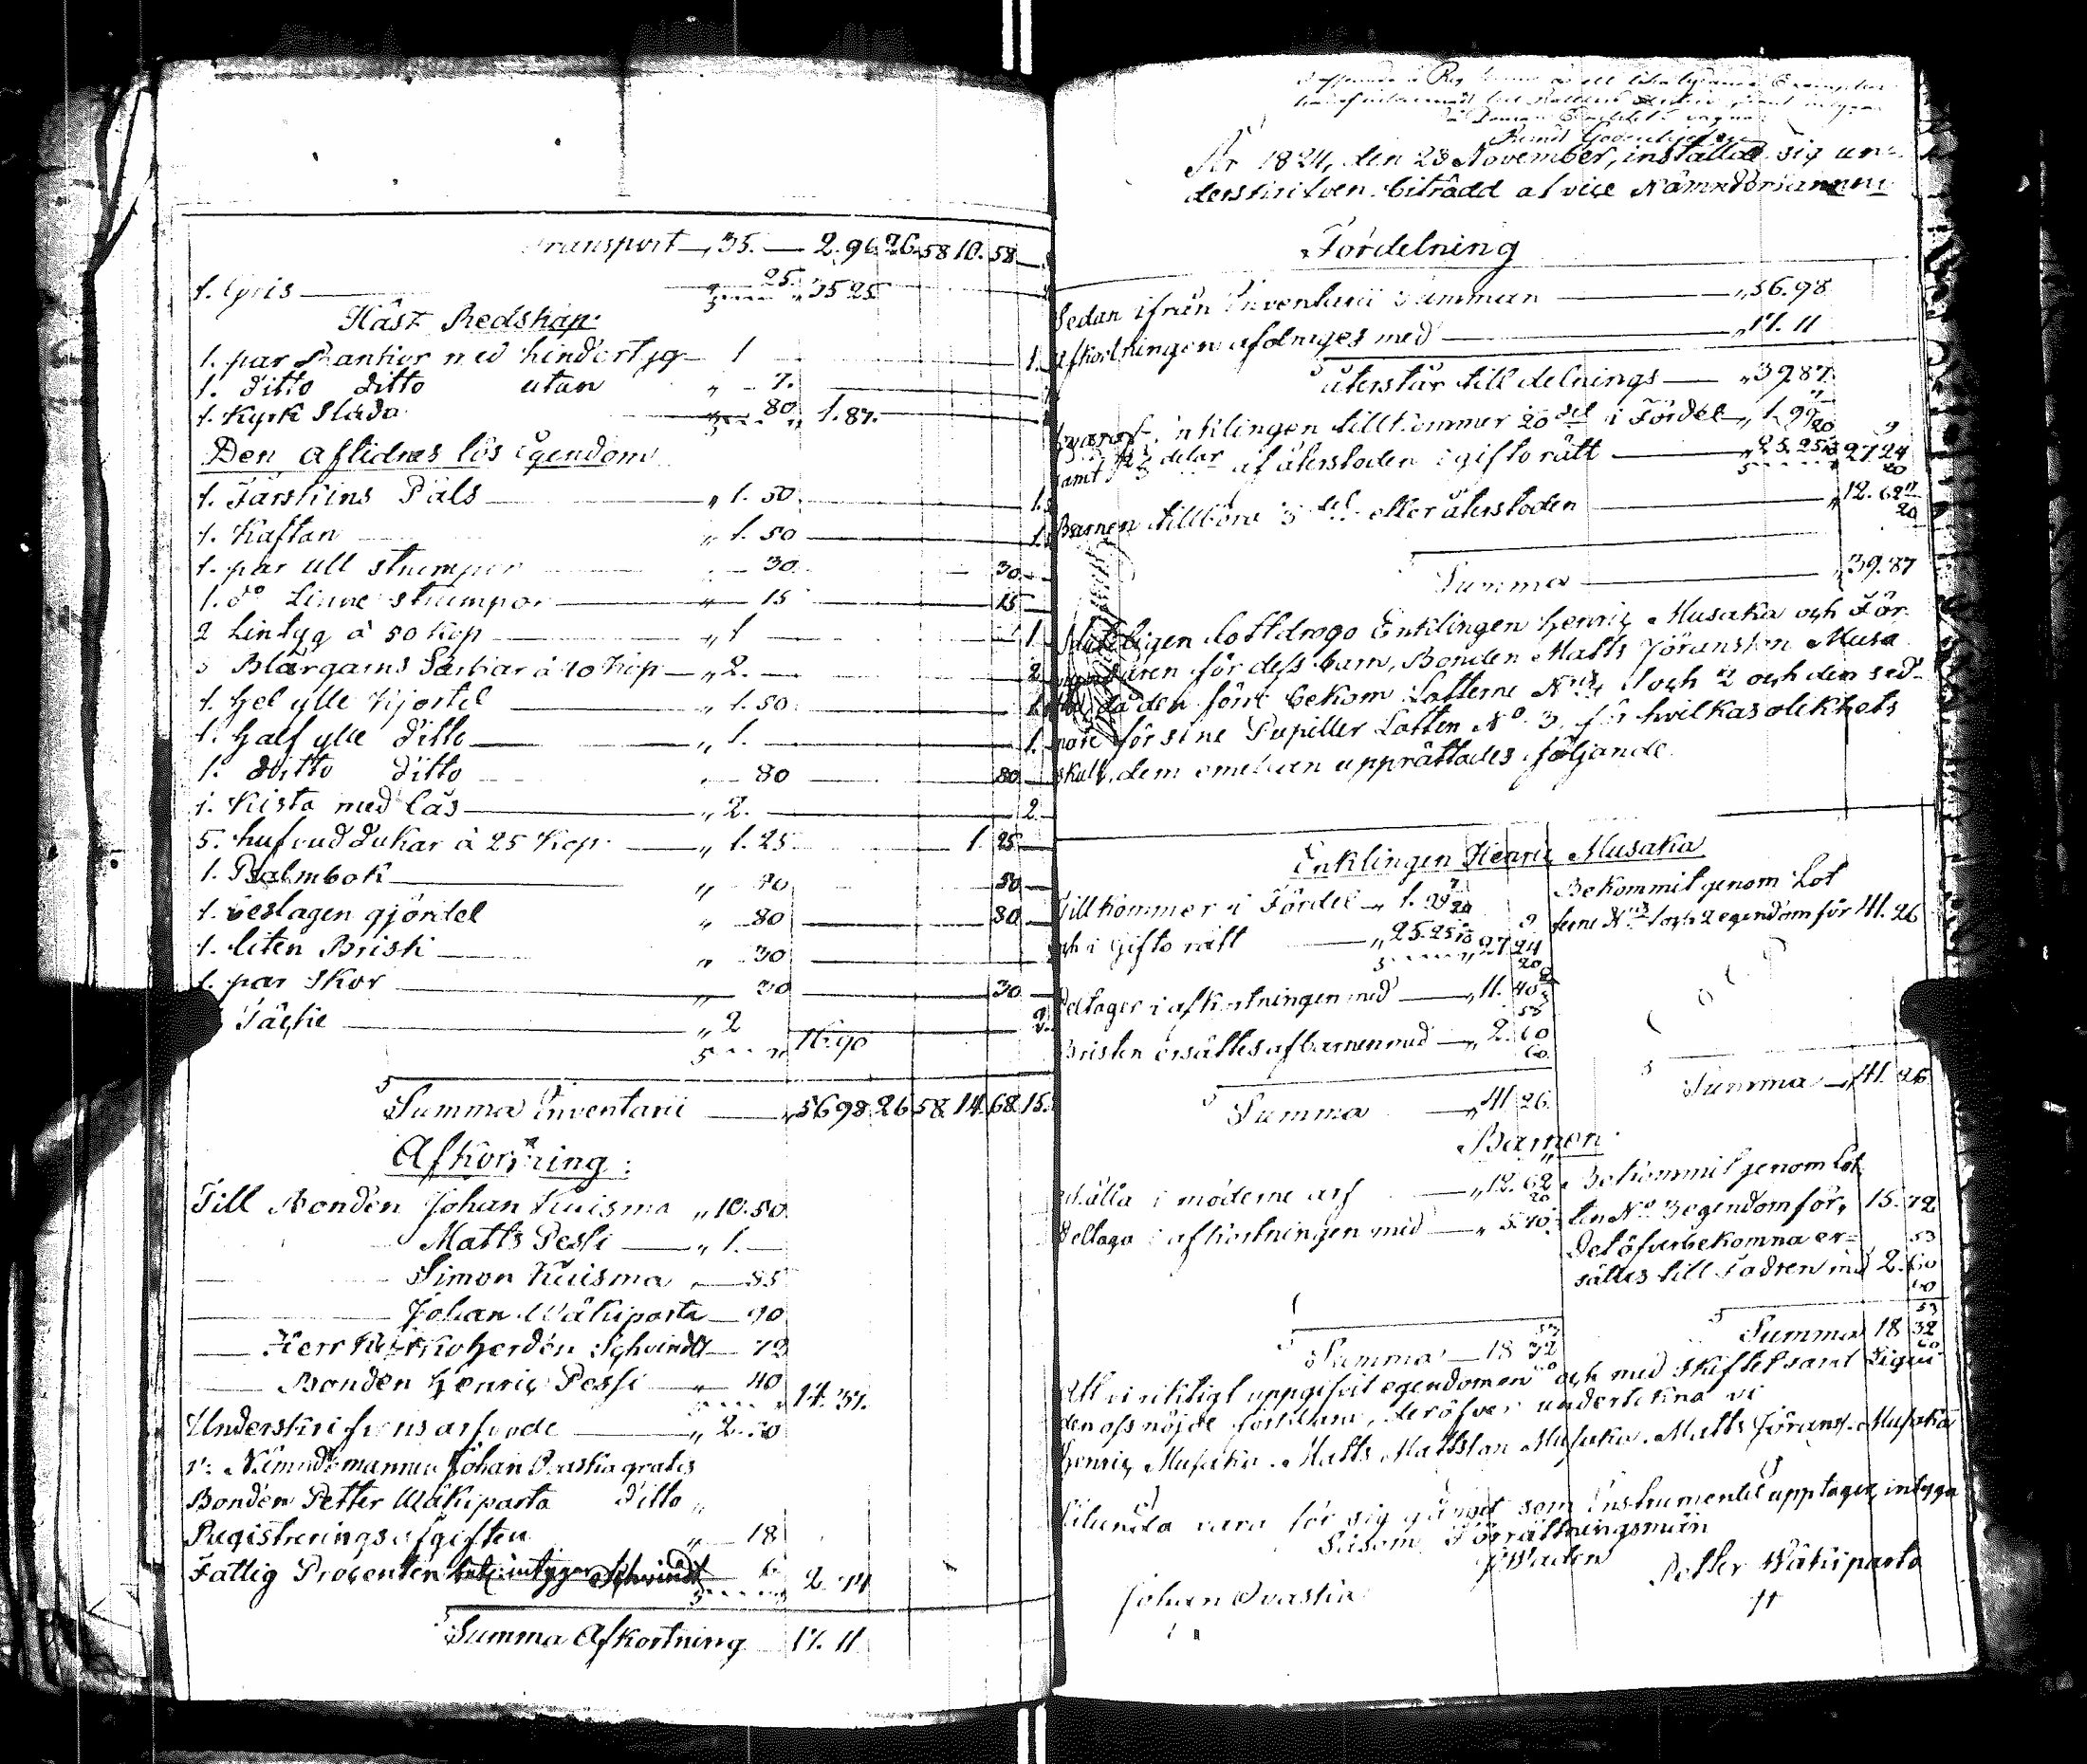 Transport „ 35. — 2. 96. 26. 58 10. 58
1. Gris „ 25. „ 35 25
Häst Redskap.
1. par Rankor med hindertyg 1 1.
1. ditto ditto utan „ 7.
1. Kyrk Släda 80 1. 87.
Den aflidnes lös egendom
1. Fårskins Päls „ 1. 50.
1. Kaftan „ 1. 50
1. par ull strumpor — 30. 30.
1. do Linne strumpor „ 15 15
2 Lintyg à 50 Kop „ 1 1.
Blårgarns Särkar à 40 Kop „ 2. 2
1. Hel ylle Kjortel „ 1. 50
1. Half ylle Ditto „ 1. 1.
1. Ditto Ditto — 80 80
1. Kista med lås „ 2. 2
5. hufvud dukar à 25 Kop. „ 1. 25 1. 25
1. Psalmbok „ 50
1. beslagen gjördel „ 80 80
1. liten Brisk „ 30
1. par Skor „ 30 30
Täcke „ 2 16. 90 2.
Summa Inventarii „ 56 98 26 58. 14. 68. 15.
Afkortning:
Till Bonden Johan Kuisma „ 10. 50
Matts Pessi „ 1. —
Simon Kuisma — 85
Johan Wäkiparta — 90
Herr Kyrkoherden Schvindt — 72
Bonden Henric Pessi „ 40 14. 37.
Underskrifvens arfvode „ 2. 50
v: Nämndemannen Johan Ovaska gratis
Bonden Petter Wäkiparta ditto „
Registrerings afgiften „ 18
Fattig Procenten intygar Schvindt 6 2. 74
Summa Afkortning 17. 11
År 1824, den 23 November, instälde sig un-
derskrifven biträdd af vice Nämndemannen
Fördelning
Sedan ifrån Inventarii Summan „ 56. 98
Afkortningen afdrages med „ 17. 11
återstår till delnings „ 39 87.
hvaraf Enklingen tillkommer 20 del i Fördel „ 1. 99
samt 2/3 delar af återstoden i giftorätt 25. 25 27. 24
Barnen tillhöra 3 del eller återstoden 12. 62
Summa „ 39. 87
lottdrogo Enklingen Henric Musaka och För
för dess barn, Bonden Matts Jöransson Musa
då den förre bekom Lotterne No 1 och 2 och den sed-
nare för sine Pupiller Lotten No 3, för hvilkas olikhets
skull, dem emellan upprättades följande
Enklingen Henric Musaka
Tillkommer i Fördel „ 1. 99
och i Gifto rätt „ 25. 25 27 24
Deltager i afkortningen med „ 11. 40
Bristen ersättes af barnen med „ 2. 60
Summa „ 41 26.
Bekommit genom Lot
terne No 1 och 2 egendom för 41. 26
Summa „ 41. 26
Barnen
Erhålla i moderne arf „ 12. 62
Deltaga i afkortningen med „ 5. 70
Summa 18 32
Bekommit genom Lot
ten No 3 egendom för, 15. 72
Det öfverbekomna er-
sättes till Fadren med 2. 60
Summa 18 32
At vi riktigt uppgifvit egendomen och med Skiftet samt
den oss nöjde förklara, deröfver underteckna vi
Henric Musaka. Matts Mattsson Musaka. Matts Jöranss. Musaka
Sålunda vara för sig gånget som Instrumentet upptager, intyga
Såsom Förrättningsmän
Johan Ovaska
Petter Wäkiparta